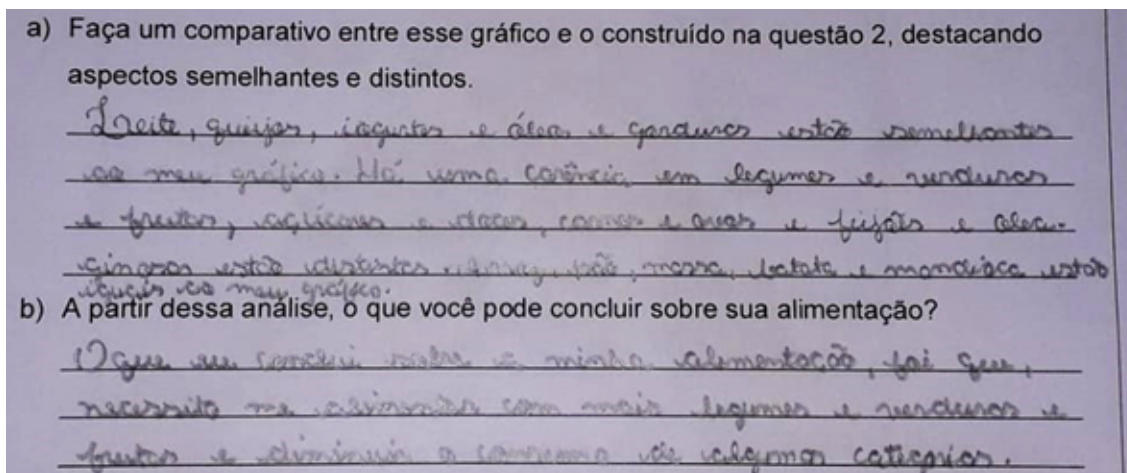 a) Faça um comparativo entre esse gráfico e o construído na questão 2, destacando
aspectos semelhantes e distintos.
Leite, queijos, iogurtes e óleos e gorduras estão semelhantes
ao meu gráfico. Há uma carência em legumes e verduras
e frutas, açúcares e doces, carnes e ovos e feijões e oleo-
ginosas estão distintos. arroz, pão, massa, batata e mandioca estão
iguais ao meu gráfico.
b) A partir dessa análise, o que você pode concluir sobre sua alimentação?
O que eu conclui sobre a minha alimentação, foi que,
necessito me alimentar com mais legumes e verduras e
frutas e diminuir o consumo de algumas categorias.